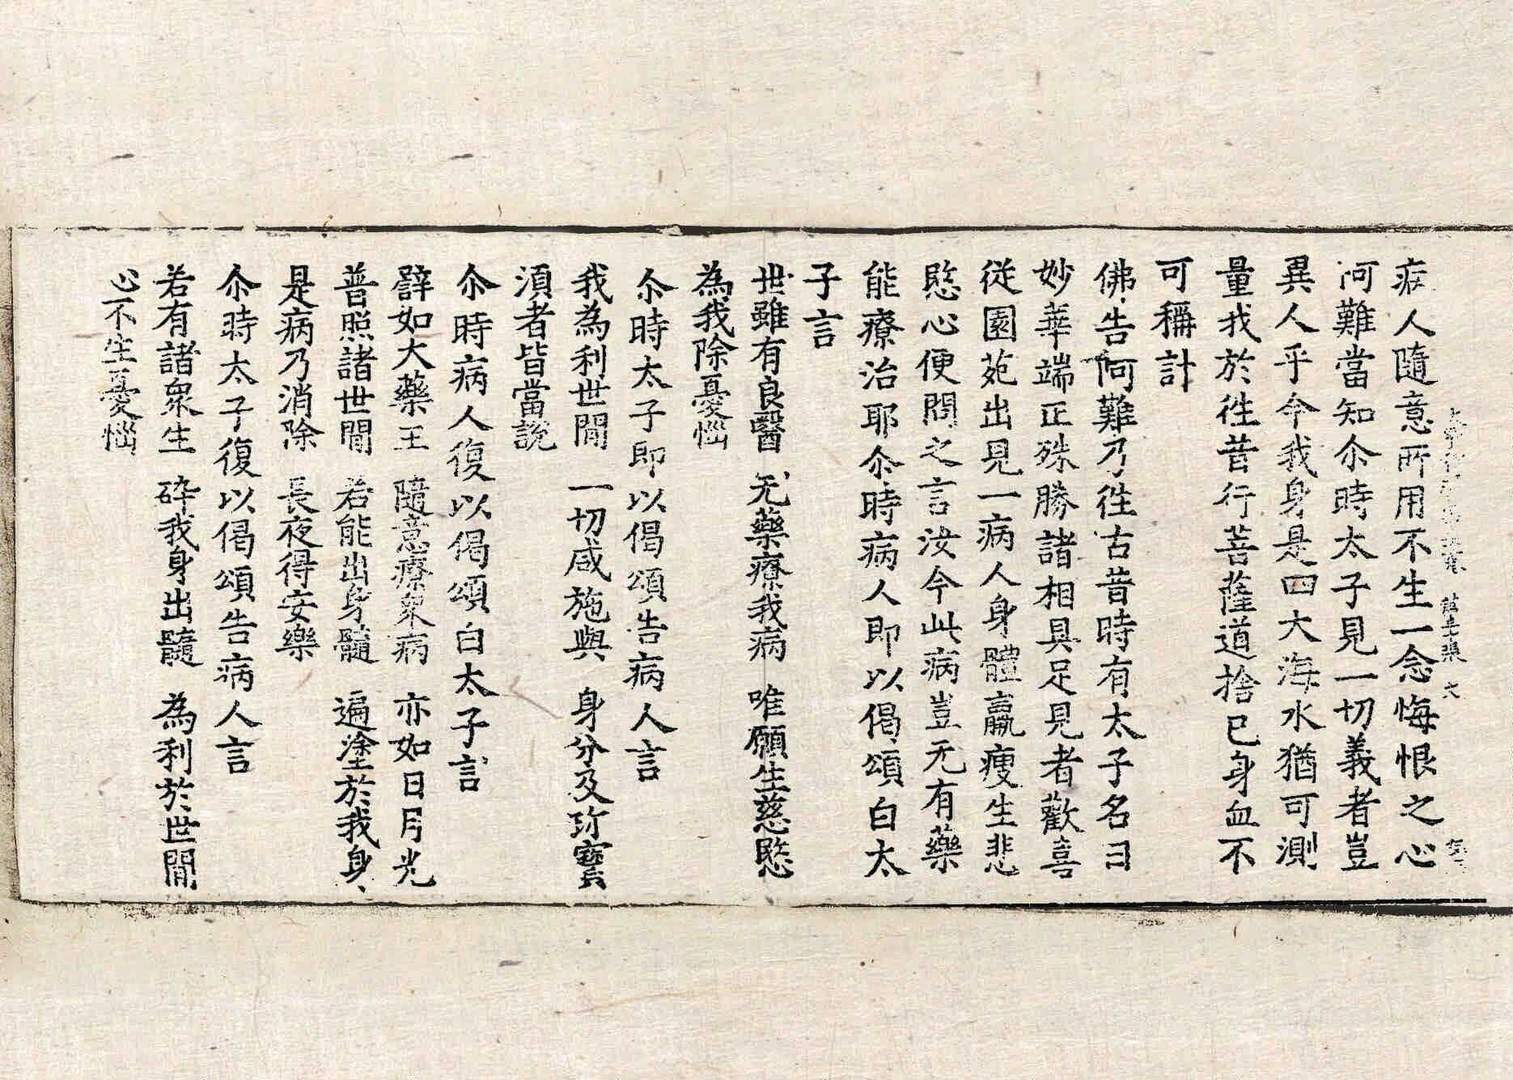 病人隨意所用不生一念悔恨之心
阿難當知尒時太子見一切義者豈
異人乎今我身是四大海水猶可測
量我於徃昔行菩薩道捨巳身血不
可稱計
佛告阿難乃徃古昔時有太子名曰
妙華端正殊勝諸相具足見者歡喜
從園苑出見一病人身體羸瘦生悲
愍心便問之言汝今此病豈无有藥
能療治耶尒時病人即以偈頌白太
子言
世雖有良醫 无藥療我病 唯願生慈愍
為我除憂惱
尒時太子即以偈頌告病人言
我為利世間 一切咸施與 身分及珎寳
湏者皆當說
尒時病人復以偈頌白太子言
譬如大藥王 隨意療衆病 亦如日月光
普照諸世間 若能出身髓 遍塗於我身
是病乃消除 長夜得安樂
尒時太子復以偈頌告病人言
若有諸衆生 碎我身出髓 為利於世間
心不生憂惱